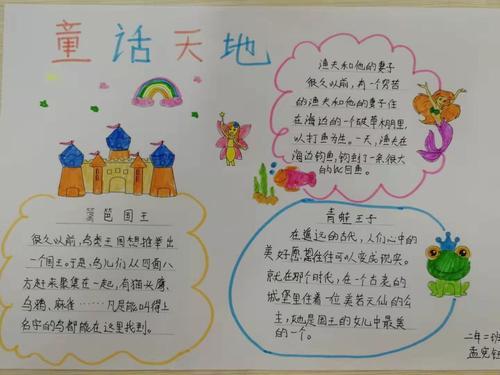 童话天地
渔夫和他的妻子
很久以前,有一个穷苦
的渔夫和他的妻子住
在海边的一个破草棚里,
以打鱼为生。一天,渔夫在
海边钓鱼,钓到了一条很大
的比目鱼。
篱笆国王
很久以前,鸟类王国想推举出
一个国王。于是,鸟儿们从四面八
方赶来聚集在一起,有猫头鹰、
乌鸦、麻雀……凡是能叫得上
名字的鸟都能在这里找到。
青蛙王子
在遥远的古代,人们心中的
美好愿望往往可以变成现实。
就在那个时代,在一个古老的
城堡里住着一位美若天仙的公
主,她是国王的女儿中最美
的一个。
二年二班
孟宪钰